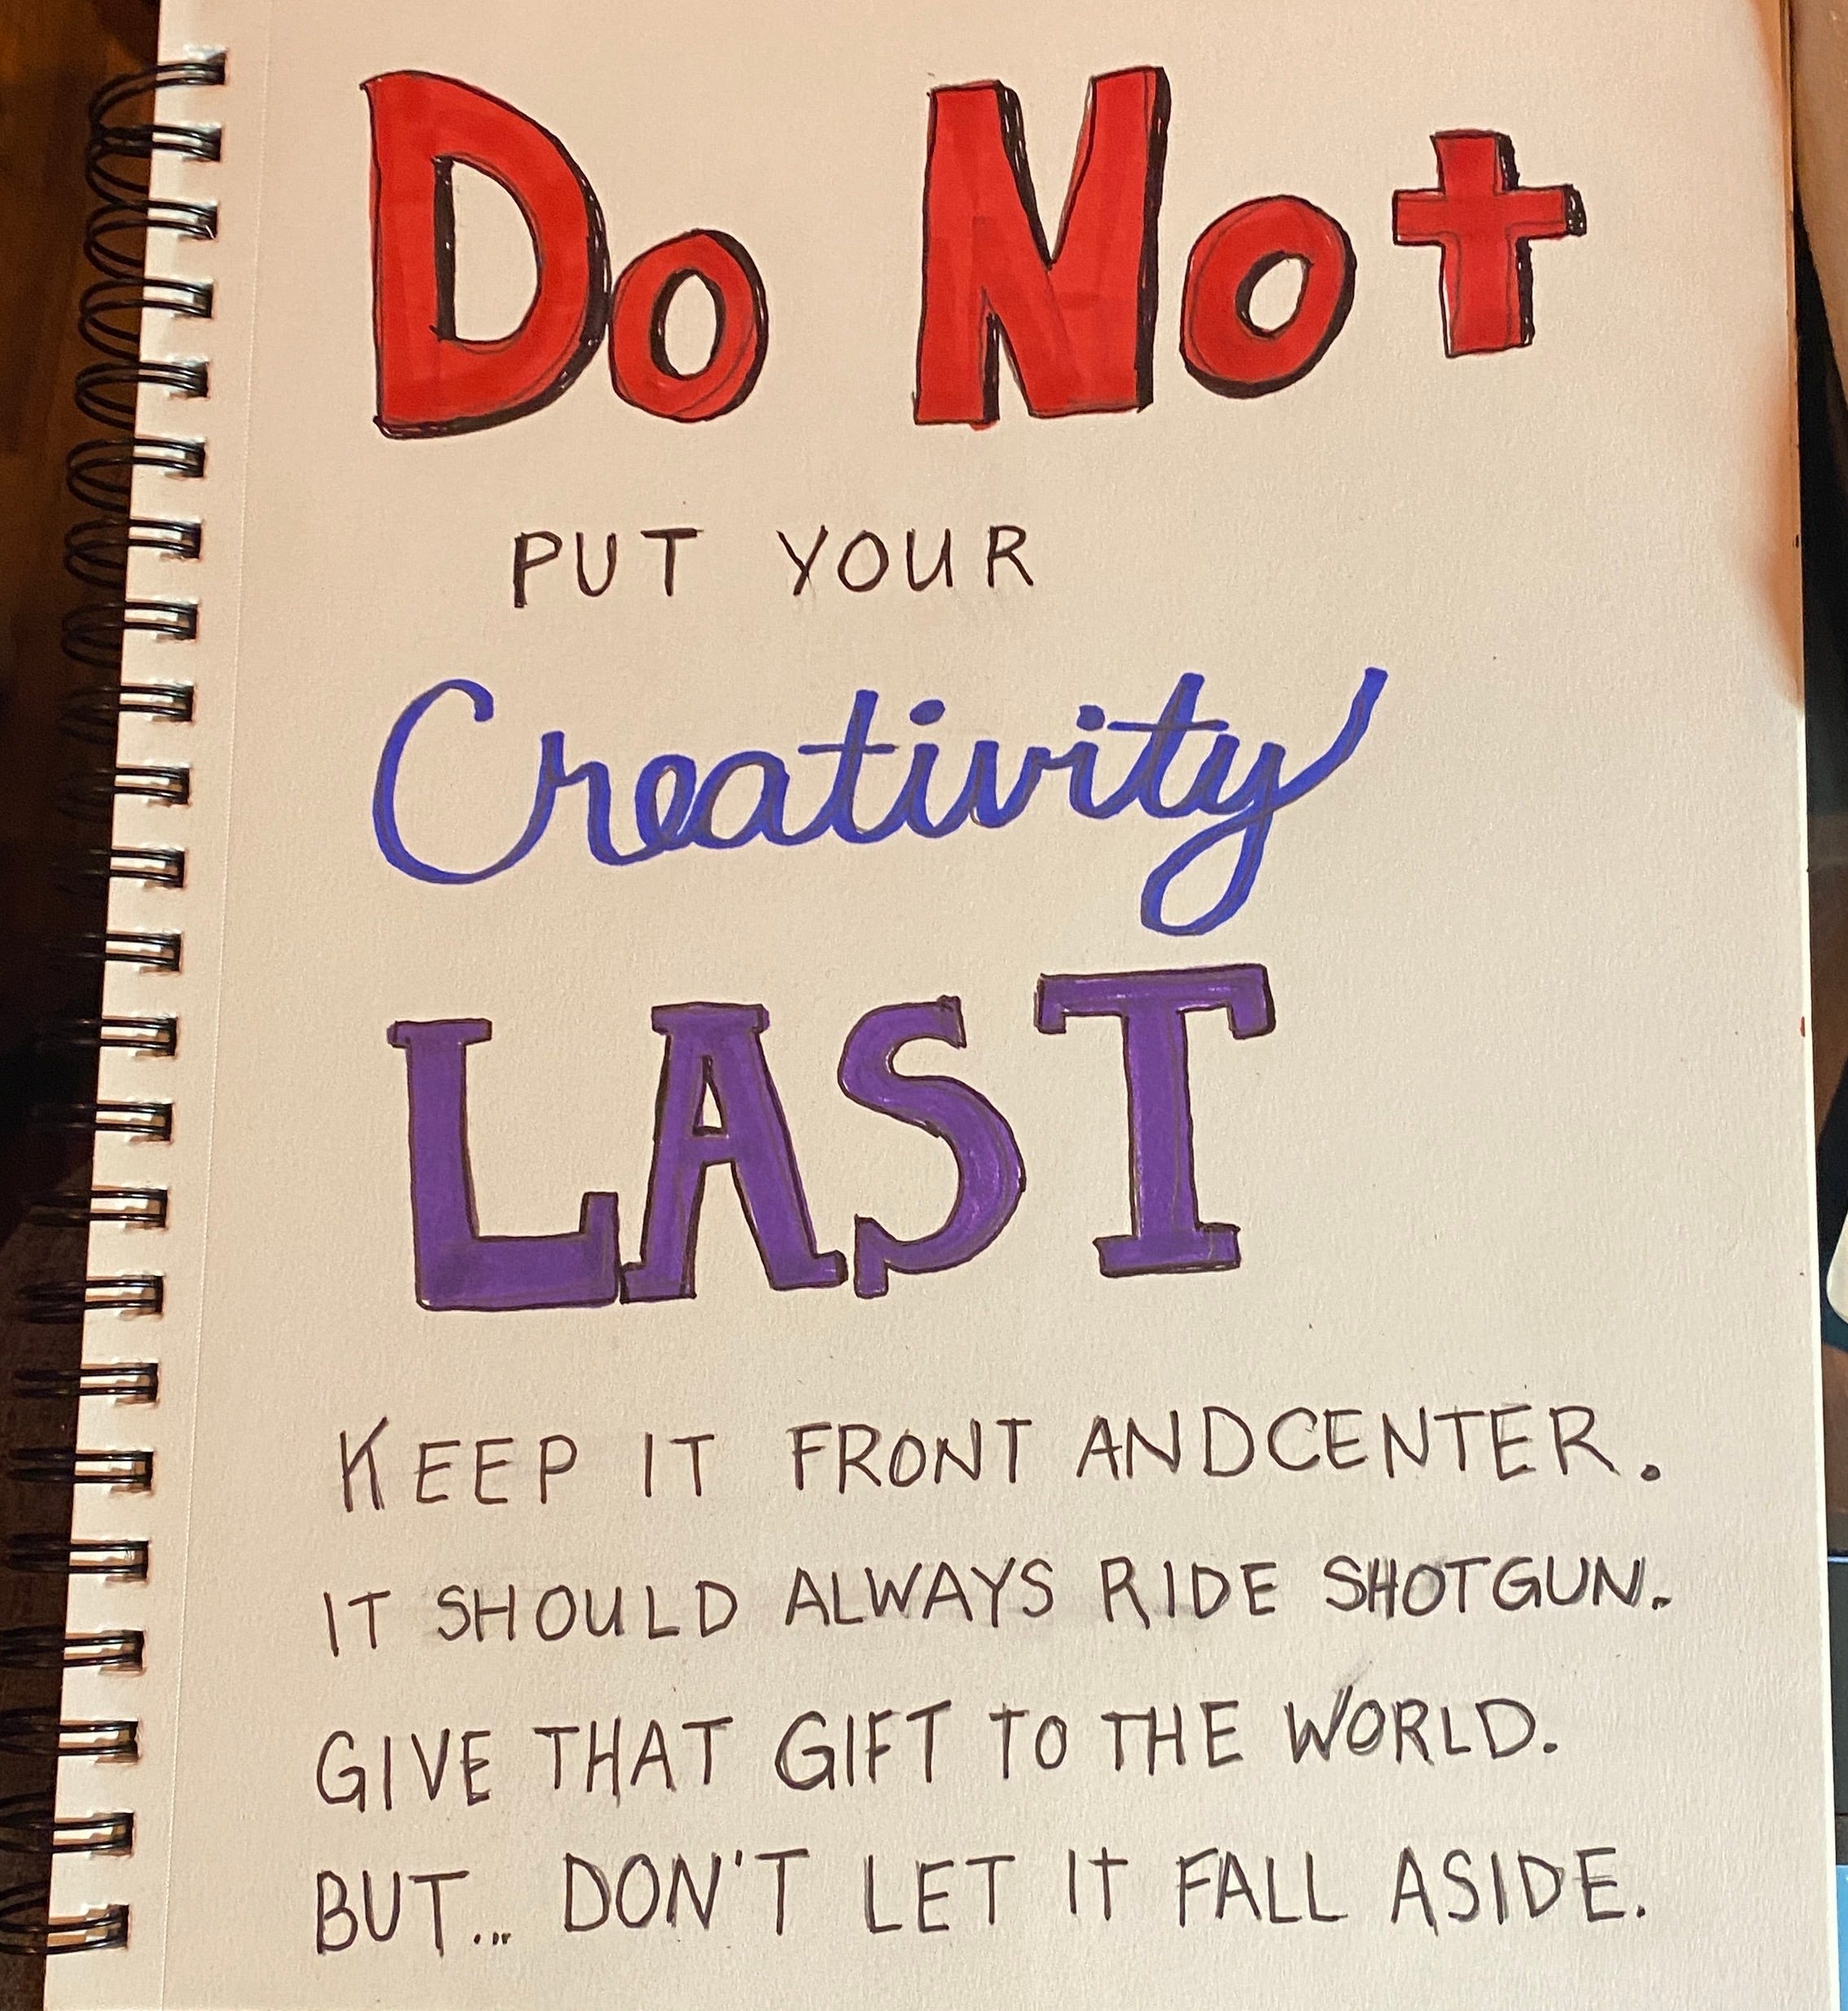 Do Not
PUT YOUR
Creativity
LAST
KEEP IT FRONT ANDCENTER.
IT SHOULD ALWAYS RIDE SHOTGUN.
GIVE THAT GIFT TO THE WORLD.
BUT... DON'T LET IT FALL ASIDE.